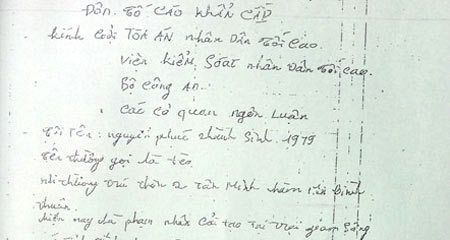 Đơn. Tố Cáo Khẩn Cấp
kính Gởi TOA AN nhân Dân Tối Cao.
Viên kiểm, Soat nhân Dân Tối cao.
Bộ Công An.
các cơ quan ngôn Luân
Tôi Tên: nguyễn phuc thành Sinh. 1979
Tên thường gọi là tèo
thôn 2 tân Minh hàm tân Bình
thuân.
hiện nay là phạm nhân Cải tao Tai trại giam Sông